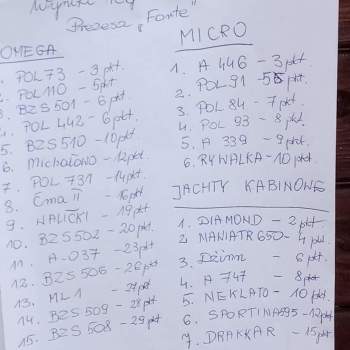 Wyniki
Prezesa „Forte"
OMEGA
POL 73 - 3 pkt.
POL 110 - 5 pkt
BZS 501 - 6 pkt.
POL 442 - 6 pkt.
5. BZS 510 - 10 pkt
6. Michałowo - 12 pkt.
7. POL 731 - 14 pkt.
8. Ema II - 16 pkt
9. WALICKI - 19 pkt
10. BZS 502 - 20 pkt.
11. A-037 - 23 pkt
12. BZS 506 - 26 pkt
13. ML 1 - 27 pkt
14. BZS 509 - 28 pkt
15. BZS 508 - 29 pkt
MICRO
1. A 446 - 3 pkt.
2. POL 91 - 5 pkt.
3. POL 84 - 7 pkt.
4. POL 93 - 8 pkt.
5. A 339 - 9 pkt.
6. RYWALKA - 10 pkt.
JACHTY KABINOWE
1. DIAMOND - 2 pkt.
2. MANIATR 650 - 4 pkt.
3. Dżinn - 6 pkt.
4. A 747 - 8 pkt
5. NEKLATO - 10 pkt.
6. SPORTINA 595 - 12 pkt
7. DRAKKAR - 15 pkt